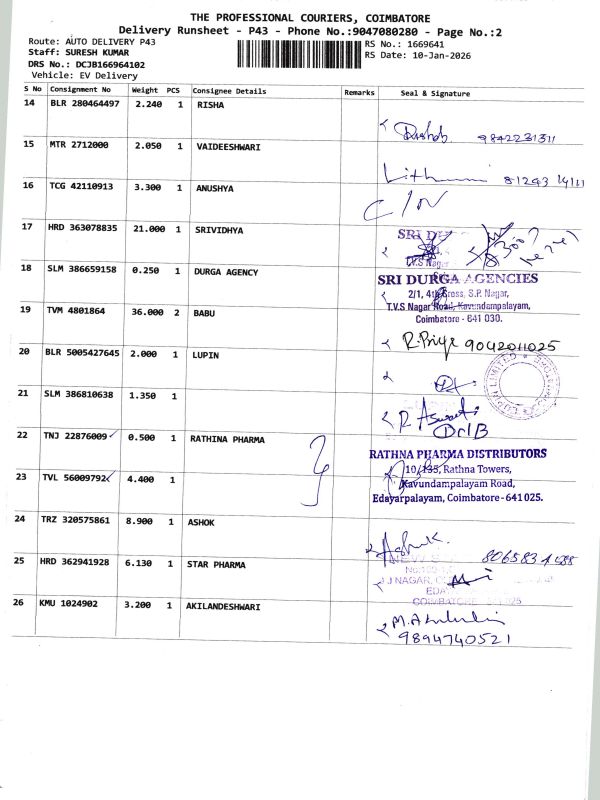 THE PROFESSIONAL COURIERS, COIMBATORE
Delivery Runsheet - P43 - Phone No.:9047080280 - Page No.:2
Route: AUTO DELIVERY P43
Staff: SURESH KUMAR
DRS No.: DCJB166964102
Vehicle: EV Delivery
RS No.: 1669641
RS Date: 10-Jan-2026
S No Consignment No Weight PCS Consignee Details Remarks Seal & Signature
14 BLR 280464497 2.240 1 RISHA
9842231311
15 MTR 2712000 2.050 1 VAIDEESHWARI
16 TCG 42110913 3.300 1 ANUSHYA
C/N
17 HRD 363078835 21.000 1 SRIVIDHYA
SRI DU
T.V.S Nagar
18 SLM 386659158 0.250 1 DURGA AGENCY
SRI DURGA AGENCIES
2/1, 4th Cross, S.P. Nagar,
T.V.S Nagar Road, Kavundampalayam,
Coimbatore - 641 030.
19 TVM 4801864 36.000 2 BABU
R. Priya 9042011025
20 BLR 5005427645 2.000 1 LUPIN
LUPIN LIMITED
21 SLM 386810638 1.350 1
22 TNJ 22876009 0.500 1 RATHINA PHARMA
RATHNA PHARMA DISTRIBUTORS
10/135, Rathna Towers,
Kavundampalayam Road,
Edayarpalayam, Coimbatore - 641 025.
23 TVL 56009792 4.400 1
24 TRZ 320575861 8.900 1 ASHOK
Ashok.
25 HRD 362941928 6.130 1 STAR PHARMA
NEW S
J NAGAR,
EDA
COIMBATORE
26 KMU 1024902 3.200 1 AKILANDESHWARI
9894740521